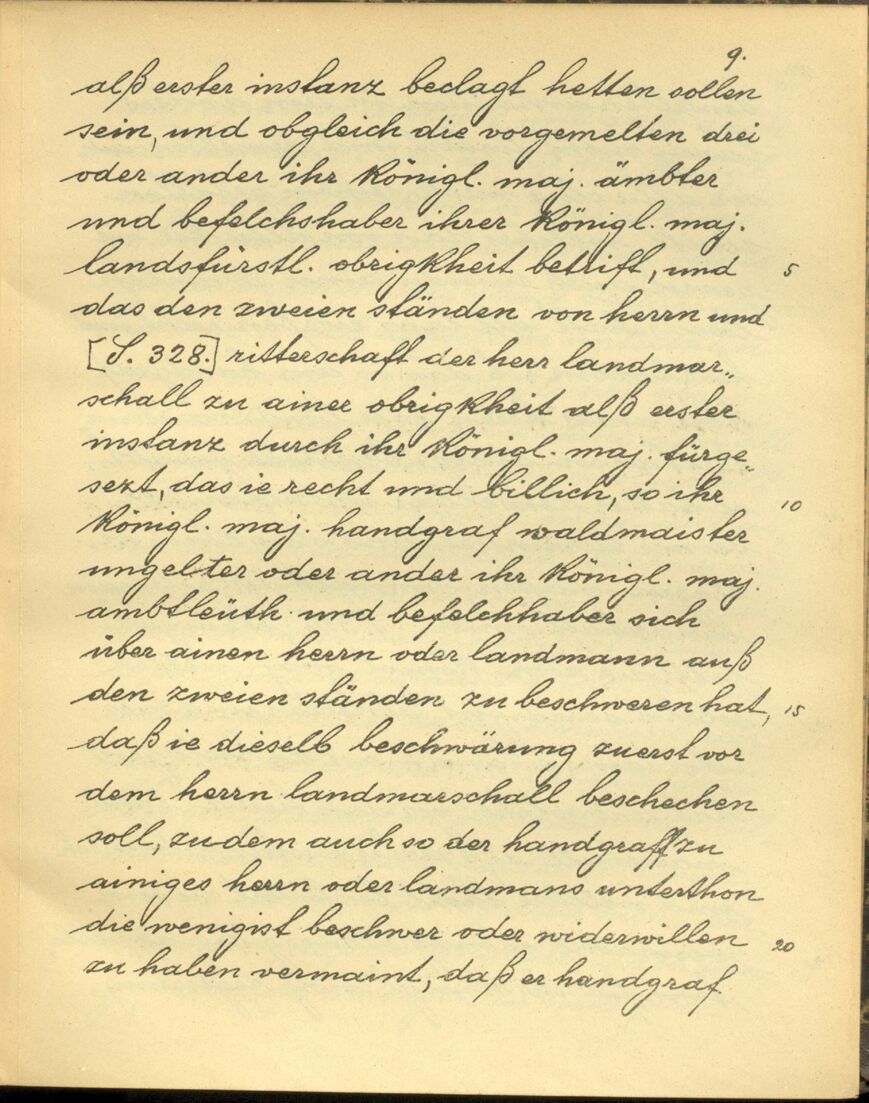 9.
alß erster instanz beclagt hetten sollen
sein, und obgleich die vorgemelten drei
oder ander ihr Königl. maj. ämbter
und befelchshaber ihrer Königl. maj.
landsfürstl. obrigkheit betrift, und 5
das den zweien ständen von herrn und
[S. 328.] ritterschaft der herr landmar„
schall zu ainer obrigkheit alß erster
instanz durch ihr Königl. maj. fürge„
sezt, das ie recht und billich, so ihr 10
Königl. maj. handgraf waldmaister
ungelter oder ander ihr Königl. maj.
ambtleüth und befelchhaber sich
über ainen herrn oder landmann auß
den zweien ständen zu beschweren hat, 15
daß ie dieselb beschwärung zuerst vor
dem herrn landmarschall beschechen
soll, zu dem auch so der handgraff zu
ainiges herrn oder landmans unterthon
die wenigist beschwer oder widerwillen 20
zu haben vermaint, daß er handgraf